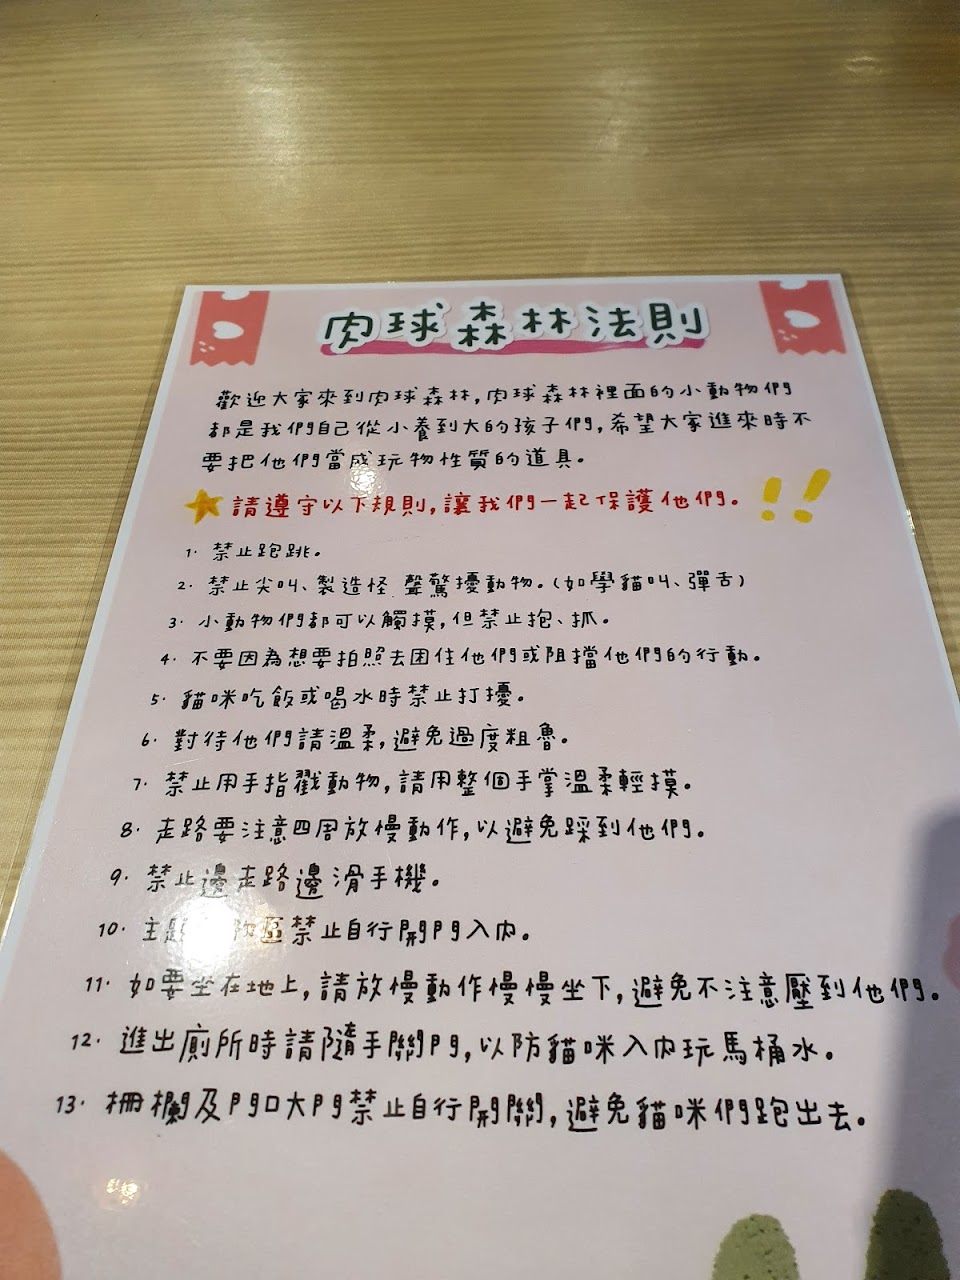 肉球森林法則
歡迎大家來到肉球森林,肉球森林裡面的小動物們
都是我們自己從小養到大的孩子們,希望大家進來時不
要把他們當成玩物性質的道具。
請遵守以下規則,讓我們一起保護他們。!!
1. 禁止跑跳。
2. 禁止尖叫、製造怪 聲驚擾動物。(如學貓叫、彈舌)
3. 小動物們都可以觸摸,但禁止抱、抓。
4. 不要因為想要拍照去困住他們或阻擋他們的行動。
5. 貓咪吃飯或喝水時禁止打擾。
6. 對待他們請溫柔,避免過度粗魯。
7. 禁止用手指戳動物,請用整個手掌溫柔輕摸。
8. 走路要注意四周放慢動作,以避免踩到他們。
9. 禁止邊走路邊滑手機。
10. 主題 區禁止自行開門入內。
11. 如要坐在地上,請放慢動作慢慢坐下,避免不注意壓到他們。
12. 進出廁所時請隨手關門,以防貓咪入內玩馬桶水。
13. 柵欄及門口大門禁止自行開關,避免貓咪們跑出去。